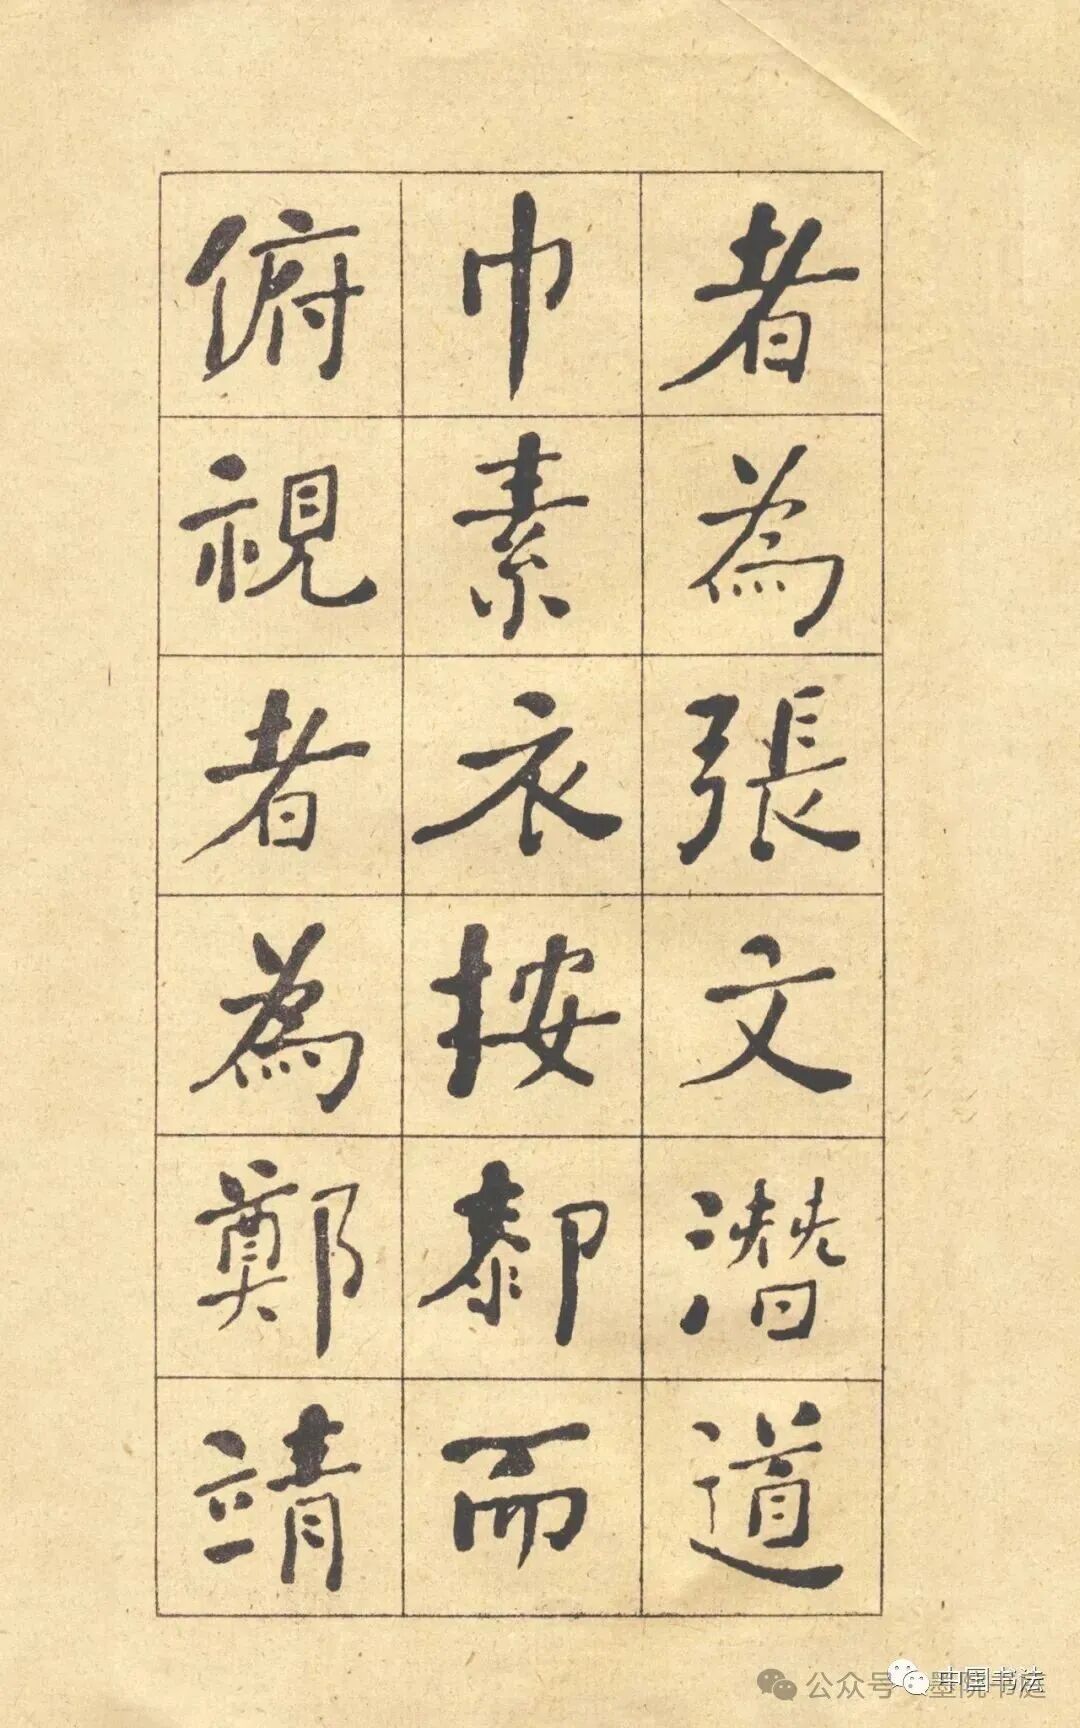 者為張文潛道
巾素衣按厀而
俯視者為鄭靖
公众号
中国书法